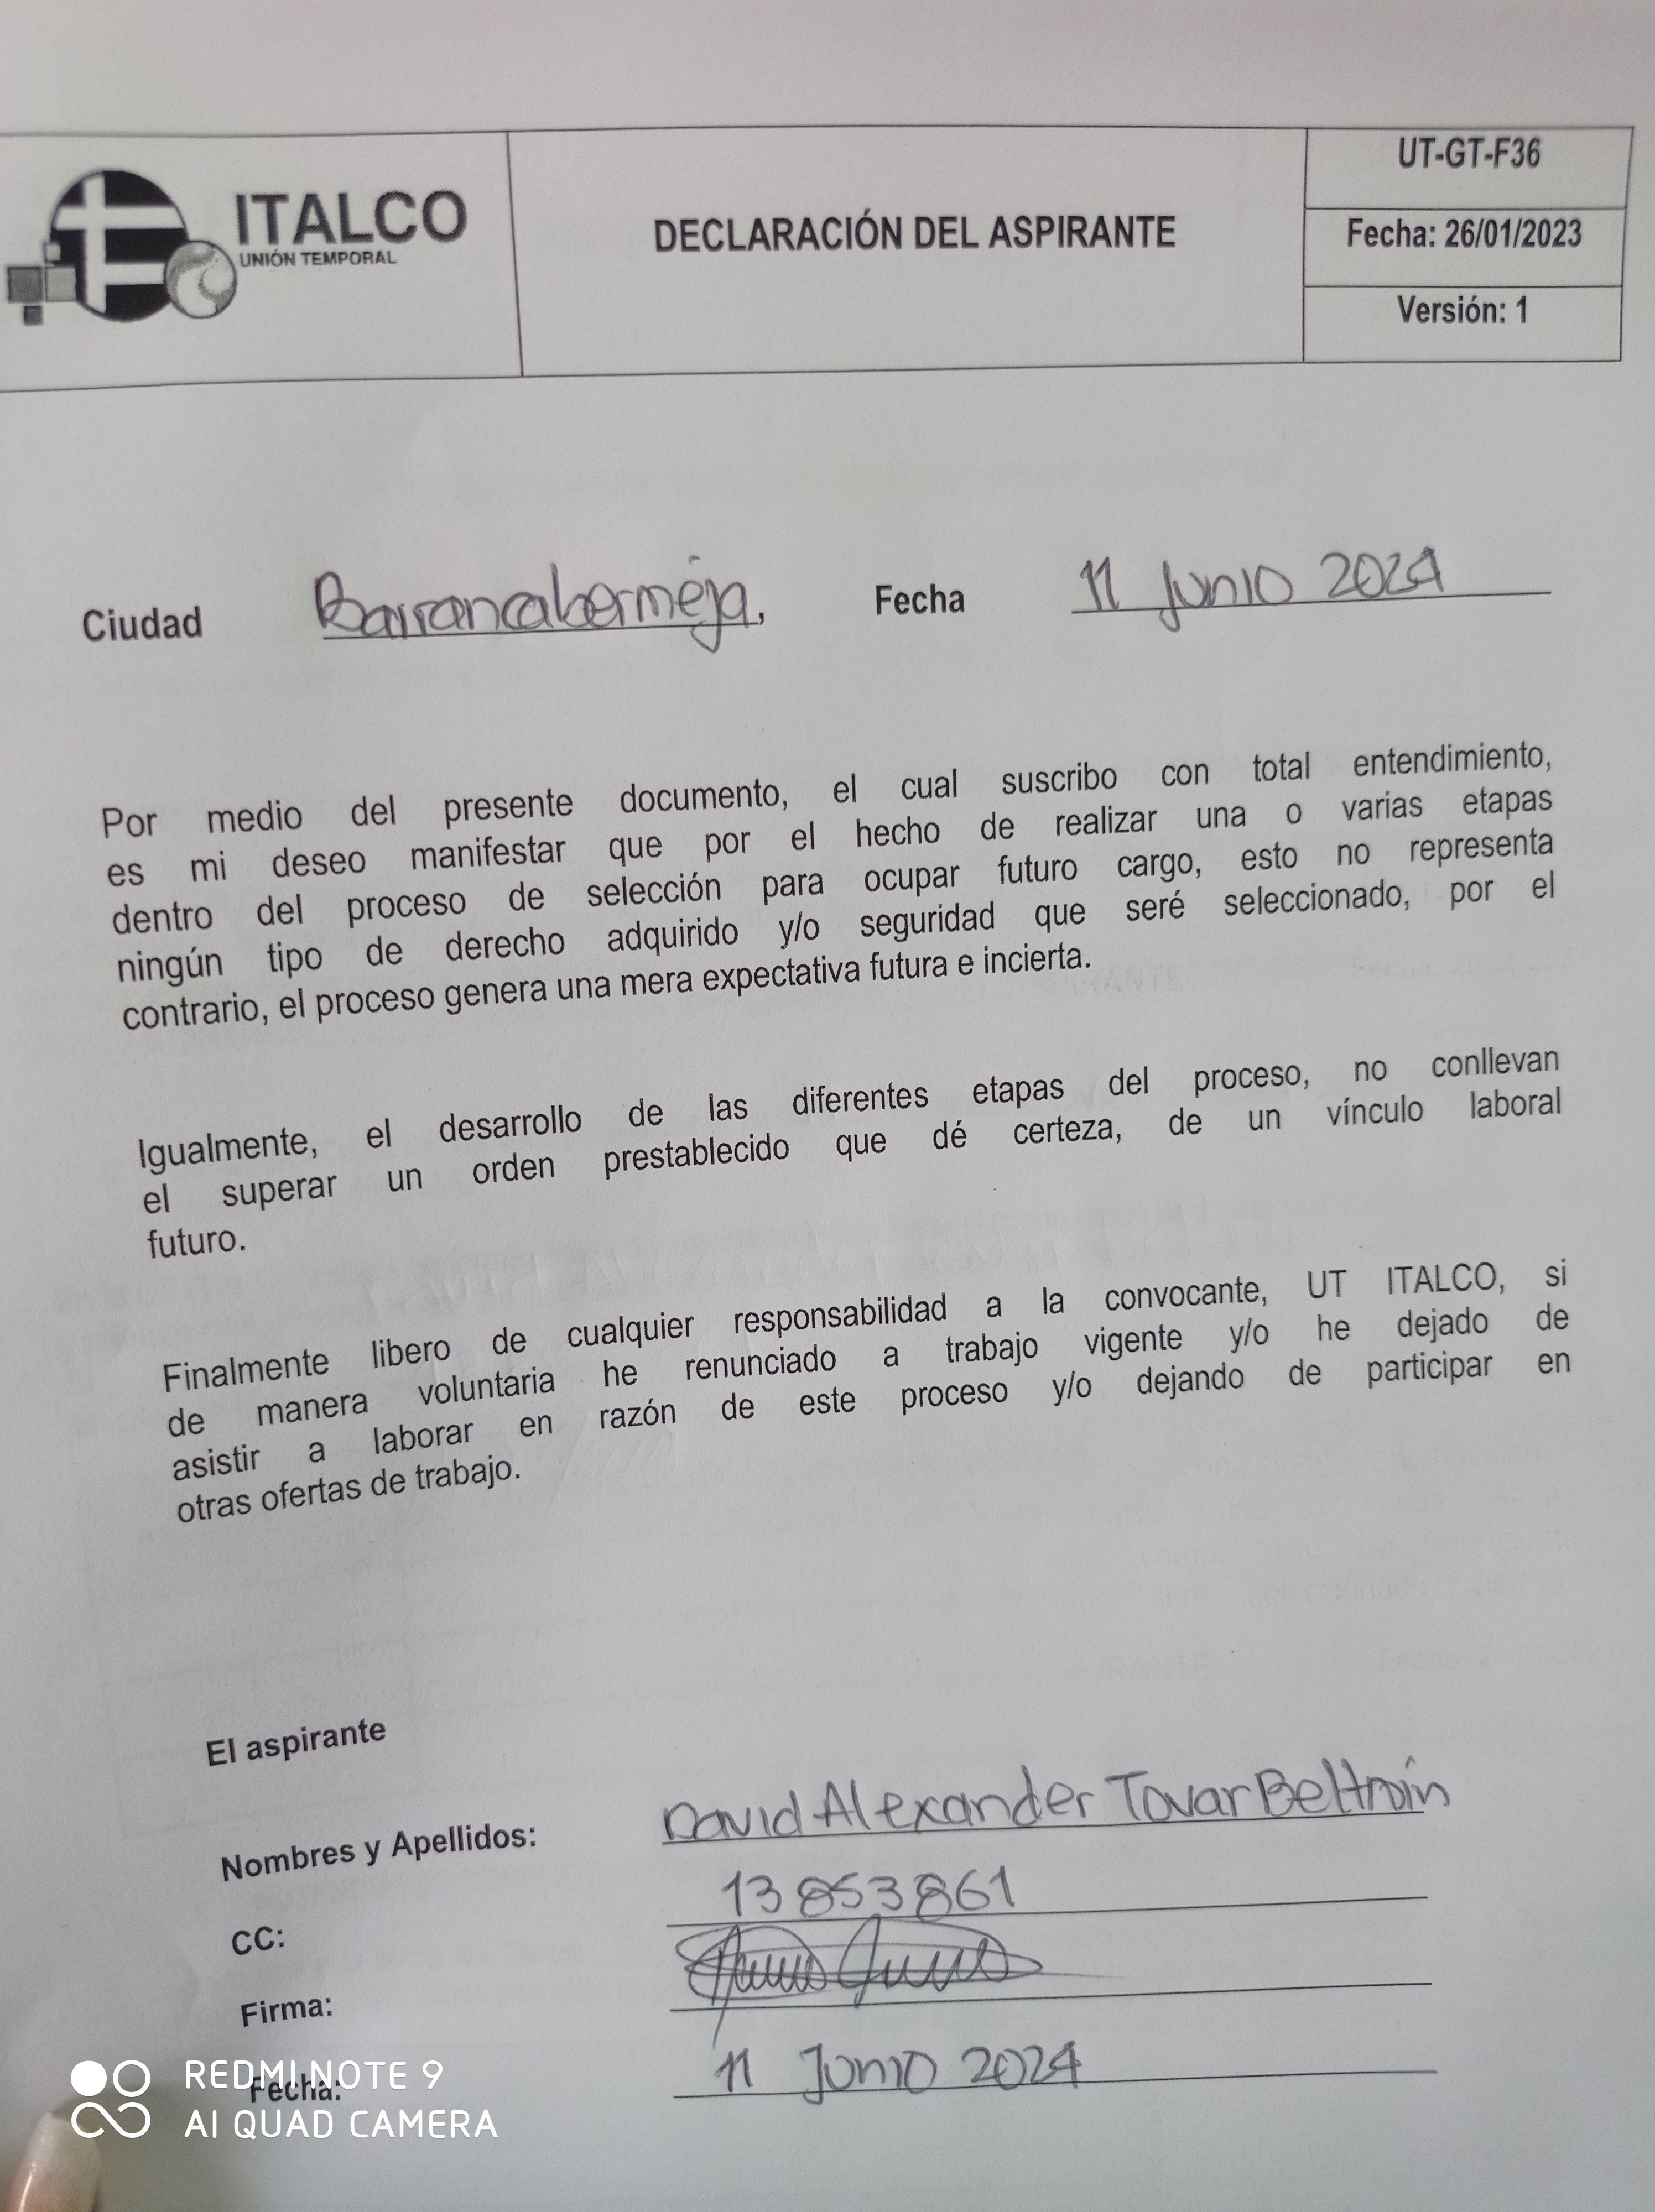 ITALCO
UNIÓN TEMPORAL
DECLARACIÓN DEL ASPIRANTE
UT-GT-F36
Fecha: 26/01/2023
Versión: 1
Ciudad Barrancabermeja, Fecha 11 Junio 2024
Por medio del presente documento, el cual suscribo con total entendimiento,
es mi deseo manifestar que por el hecho de realizar una o varias etapas
dentro del proceso de selección para ocupar futuro cargo, esto no representa
ningún tipo de derecho adquirido y/o seguridad que seré seleccionado, por el
contrario, el proceso genera una mera expectativa futura e incierta.
Igualmente, el desarrollo de las diferentes etapas del proceso, no conllevan
el superar un orden prestablecido que dé certeza, de un vínculo laboral
futuro.
Finalmente libero de cualquier responsabilidad a la convocante, UT ITALCO, si
de manera voluntaria he renunciado a trabajo vigente y/o he dejado de
asistir a laborar en razón de este proceso y/o dejando de participar en
otras ofertas de trabajo.
El aspirante
Nombres y Apellidos: David Alexander Tovar Beltrán
CC: 13853861
Firma:
Fecha: 11 Junio 2024
REDMI NOTE 9
AI QUAD CAMERA